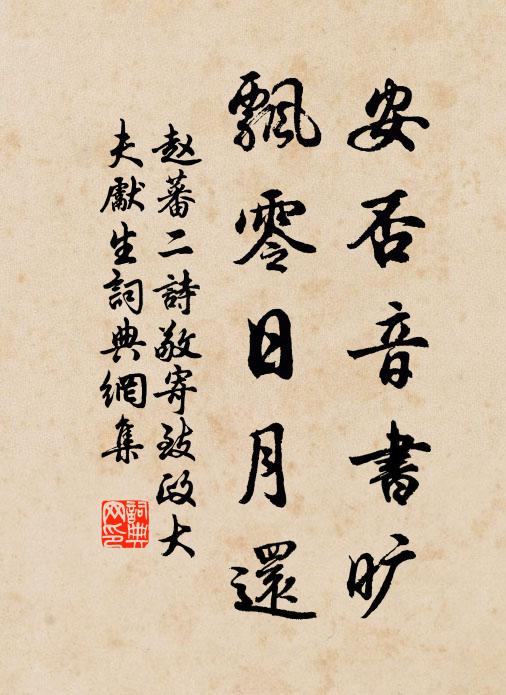 安否音書旷
飄零日月還
赵蕃二詩敬寄致政大
夫獻生詞典網集
詞典
网印